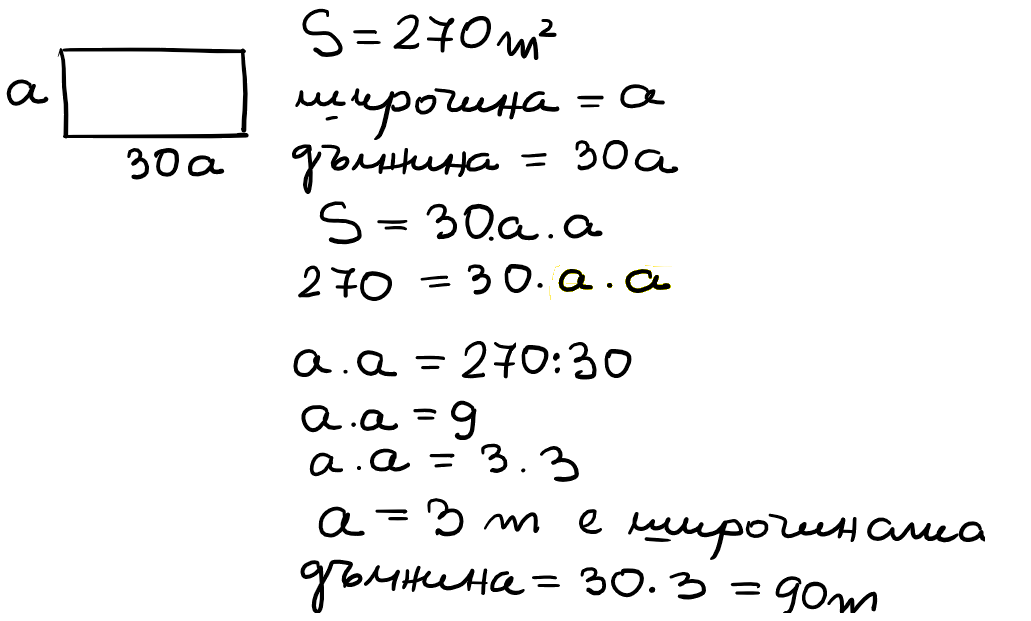 S = 270 m²
a
широчина = a
30a
дължина = 30a
S = 30.a.a
270 = 30.a.a
a.a = 270:30
a.a = 9
a.a = 3.3
a = 3 m е широчината
дължина = 30.3 = 90m